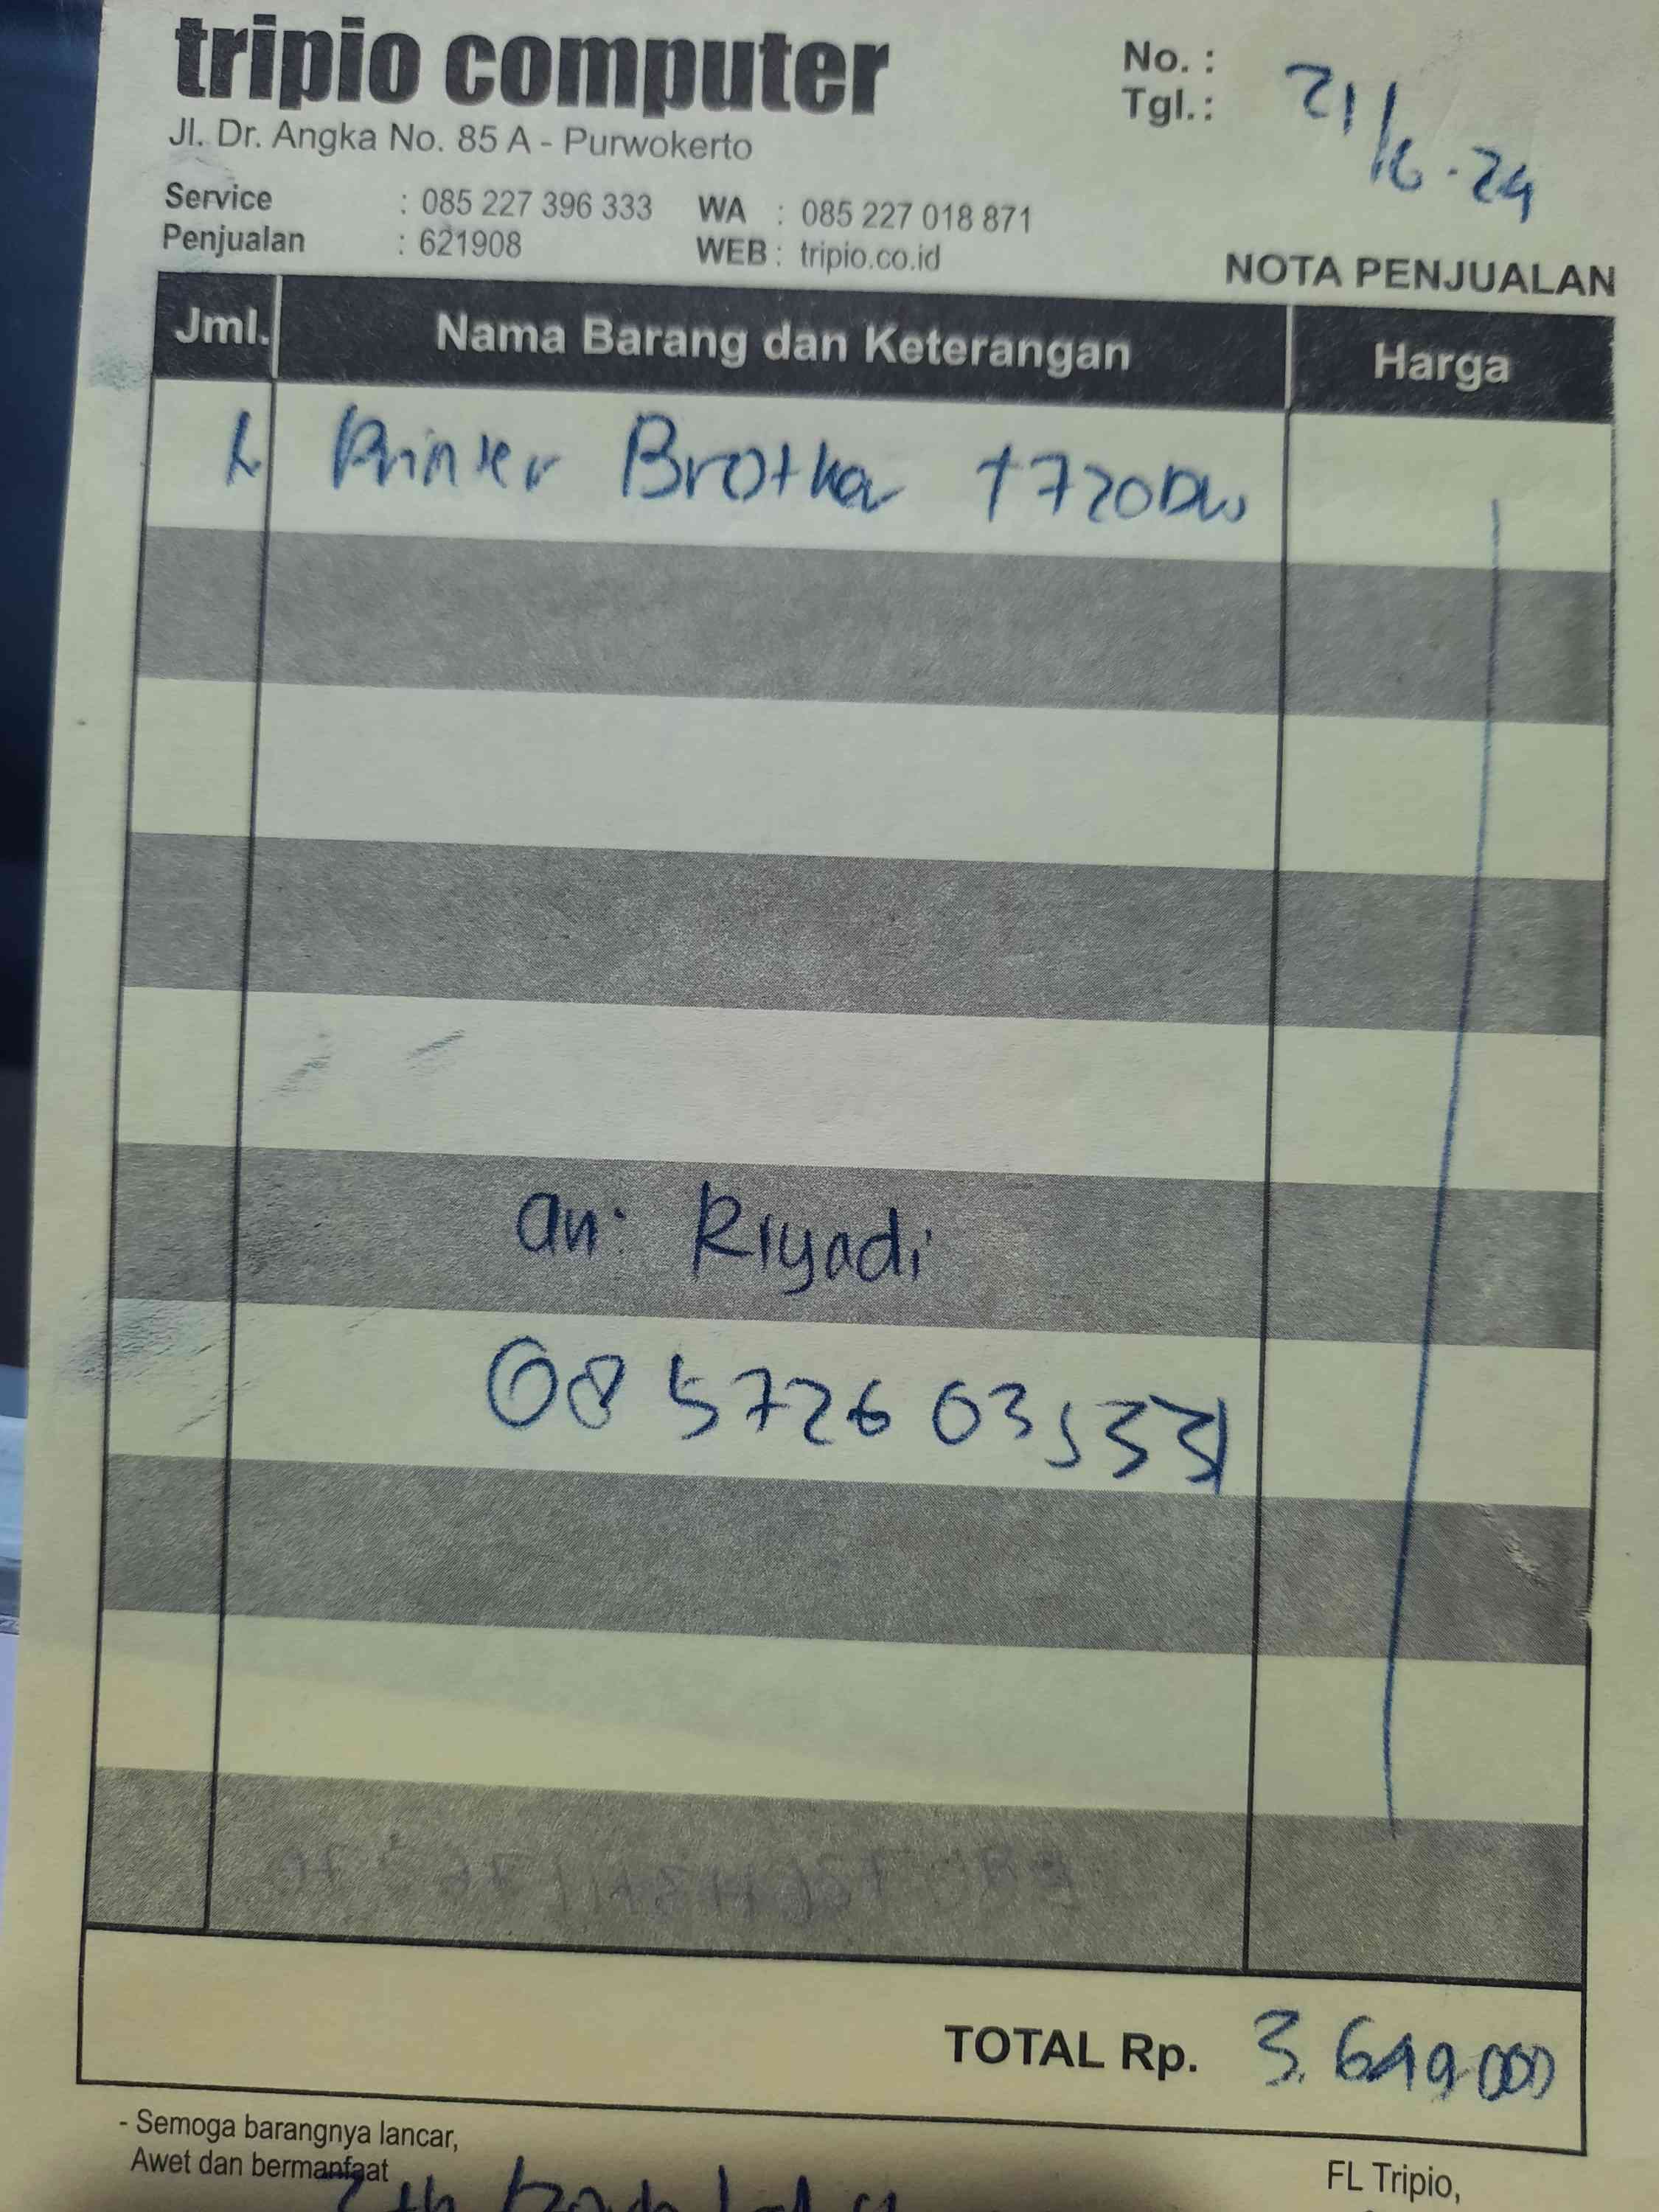 tripio computer
Jl. Dr. Angka No. 85 A - Purwokerto
No. :
Tgl. : 21/6-24
Service : 085 227 396 333 WA : 085 227 018 871
Penjualan : 621908 WEB : tripio.co.id
NOTA PENJUALAN
Jml. Nama Barang dan Keterangan Harga
1 Printer Brother T720DW
an. Riyadi
08572603533
TOTAL Rp. 3.649.000
- Semoga barangnya lancar,
Awet dan bermanfaat
FL Tripio,